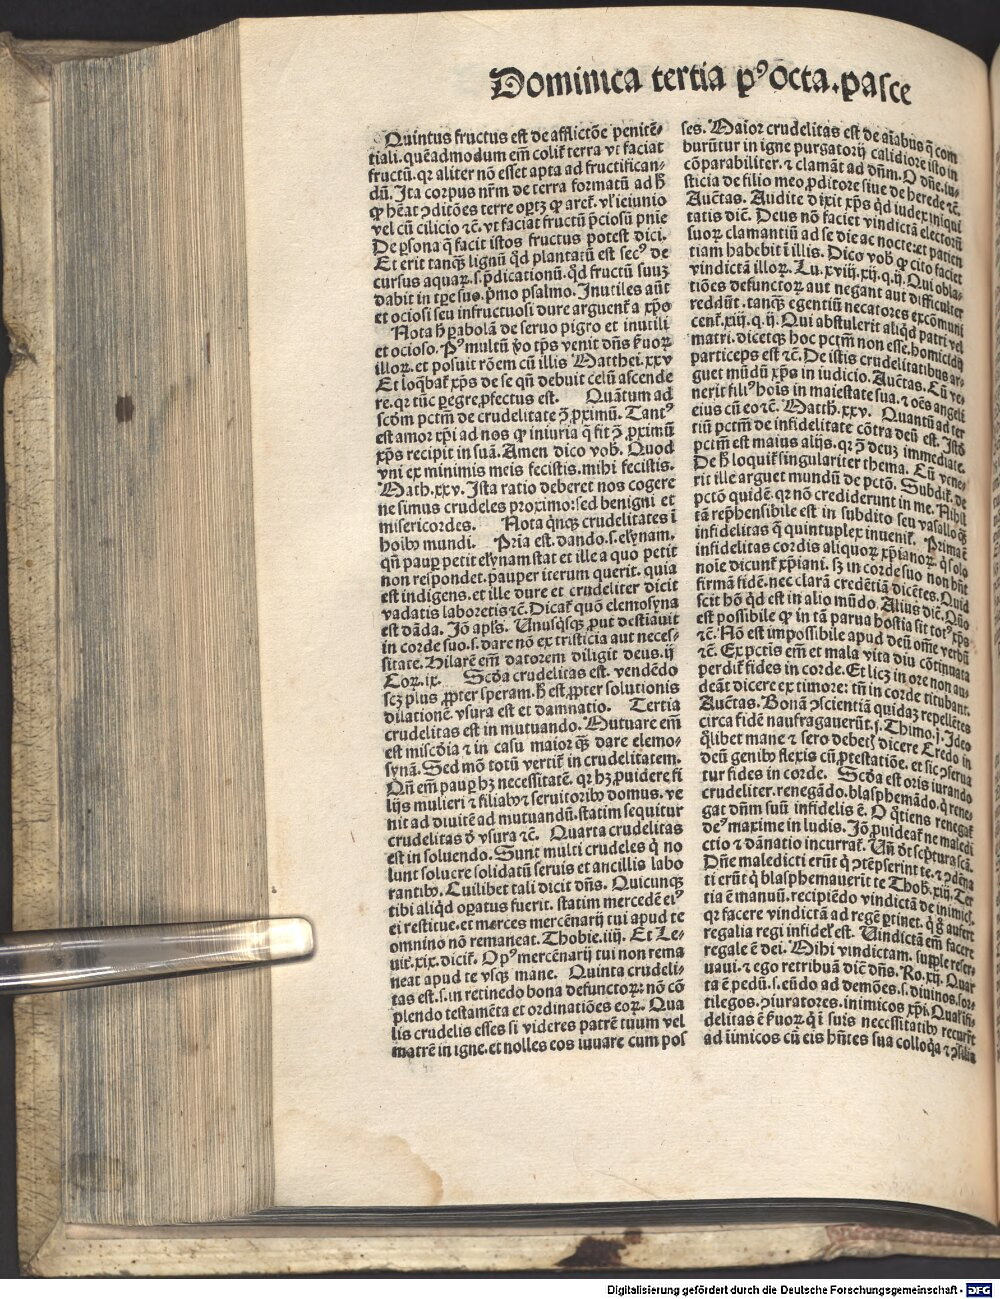 Dominica tertia pꝰ octa. pasce
Quintus fructus est de afflictõe penitẽ-
tiali. quẽadmodum em̃ colit̃ terra vt faciat
fructũ. qꝛ aliter nõ esset apta ad fructifican-
dũ. Ita corpus nr̃m de terra formatũ ad h̃
ꝙ hẽat ꝯditões terre oportꝫ ꝙ aret̃. vꝉ ieiunio
vel cũ cilicio ⁊c̃. vt faciat fructũ p̃ciosũ pnie
De ꝑsona q̃ facit istos fructus potest dici.
Et erit tanꝗ̃ lignũ qd̃ plantatũ est secꝰ de
cursus aquaꝝ. s. p̃dicationũ. qd̃ fructũ suuꝫ
dabit in tꝑe suo. p̃mo psalmo. Inutiles aũt
et ociosi seu infructuosi dure arguent̃ a xp̃o
Nota h̃ ꝑabolã de seruo pigro et inutili
et ocioso. Pꝰ multũ ṽo tp̃s venit dñs ẽuoꝝ
illoꝝ. et posuit rõem cũ illis Matthei. xxv
Et loq̃bat̃ xp̃s de se qñ debuit celũ ascende
re. qꝛ tũc ꝑegre ꝓfectus est. Quãtum ad
scd̃m pctm̃ de crudelitate ꝯ̃ ꝓximũ. Tantꝰ
est amor xp̃i ad nos ꝙ iniuria q̃ fit ꝯ̃ ꝓximũ
xp̃s recipit in suã. Amen dico vob̃. Quod
vni ex minimis meis fecistis. mihi fecistis.
Math. xxv. Ista ratio deberet nos cogere
ne simus crudeles proximo: sed benigni et
misericordes. Nota q̃nqꝫ crudelitates ĩ
hoĩbꝰ mundi. Pria est. dando. s. elynam.
qñ pauꝑ petit elynam stat et ille a quo petit
non respondet. pauper iterum querit. quia
est indigens. et ille dure et crudeliter dicit
vadatis laboretis ⁊c̃. Dicat̃ quõ elemosyna
est dãda. Jõ apl̃s. Unusq̃sqꝫ ꝓut destiauit
in corde suo. s. dare nõ ex tristicia aut neces-
sitate. Hilarẽ em̃ datorem diligit deus. ij
Coꝝ. ix. Scd̃a crudelitas est. vendẽdo
scꝫ plus ꝓpter speram. h̃ est ꝓpter solutionis
dilationẽ. vsura est et damnatio. Tertia
crudelitas est in mutuando. Mutuare em̃
est misc̃dia ⁊ in casu maior ꝗ̃ dare elemo-
synã. Sed mõ totũ vertit̃ in crudelitatem.
Qñ em̃ pauꝑ hꝫ necessitatẽ. qꝛ hꝫ ꝓuidere fi
lijs mulieri ⁊ filiabꝰ ⁊ seruitoribꝰ domus. ve
nit ad diuitẽ ad mutuandũ. statim sequitur
crudelitas d̃ vsura ⁊c̃. Quarta crudelitas
est in soluendo. Sunt multi crudeles q̃ no
lunt soluere solidatũ seruis et ancillis labo
rantibꝰ. Cuilibet tali dicit dñs. Quicunqꝫ
tibi aliqd̃ oꝑatus fuerit. statim mercedẽ eiꝰ
ei restitue. et merces mercẽnarij tui apud te
omnino nõ remaneat. Thobie. iiij. Et Le-
uit̃. xix. dicit̃. Opꝰ mercẽnarij tui non rema
neat apud te vsqꝫ mane. Quinta crudeli-
tas est. s. in retinẽdo bona defunctoꝝ: nõ cõ
plendo testamẽta et ordinatiões eoꝝ. Qua
lis crudelis esses si videres patrẽ tuum vel
matrẽ in igne. et nolles eos iuuare cum pos
ses. Maior crudelitas est de aĩabus q̃ com
burũtur in igne purgatorij calidiore isto in
cõparabiliter. ⁊ clamãt ad dñm. O dñe. iu-
sticia de filio meo ꝓditore siue de herede ⁊c̃.
Auc̃tas. Audite dixit xp̃s qd̃ iudex iniqui
tatis dic̃. Deus nõ faciet vindictã electorũ
suoꝝ clamantiũ ad se die ac nocte: et patien
tiam habebit ĩ illis. Dico vob̃ ꝙ cito faciet
vindictã illoꝝ. Lu. xviij. xij. q. ij. Qui obla-
tiões defunctoꝝ aut negant aut difficulter
reddũt. tanꝗ̃ egentiũ necatores excõmuni
cent̃. xiij. q. ij. Qui abstulerit aliqd̃ patri vel
matri. dicetqꝫ hoc pctm̃ non esse. homicidij
particeps est ⁊c̃. De istis crudelitatibus ar-
guet mũdũ xp̃s in iudicio. Auc̃tas. Cũ ve-
nerit filiꝰ hoĩs in maiestate sua. ⁊ oẽs angeli
eius cũ eo ⁊c̃. Matth. xxv. Quantũ ad ter
tiũ pctm̃ de infidelitate cõtra deũ est. Istd̃
pctm̃ est maius alijs. qꝛ ꝯ̃ deuꝫ immediate.
De h̃ loquit̃ singulariter thema. Cũ vene-
rit ille arguet mundũ de pctõ. Subdit̃. de
pctõ quidẽ. qꝛ nõ crediderunt in me. Nihil
tã rep̃hensibile est in subdito seu vasallo ꝗ̃
infidelitas q̃ quintuplex inuenit̃. Prima ẽ
infidelitas cordis aliquoꝝ xp̃ianoꝝ. q̃ solo
noĩe dicunt̃ xp̃iani. sꝫ in corde suo non hñt
firmã fidẽ. nec clarã credẽtiã dicẽtes. Quid
scit hõ qd̃ est in alio mũdo. Alius dic̃. Quõ
est possibile ꝙ in tã parua hostia sit totꝰ xp̃s
⁊c̃. Nõ est impossibile apud deũ om̃e verbũ
⁊c̃. Ex pctis em̃ et mala vita diu cõtinuata
perdit̃ fides in corde. Et licꝫ in ore non au-
deãt dicere ex timore: tñ in corde titubant.
Auc̃tas. Bonã ꝯscientiã quidaꝫ repellẽtes
circa fidẽ naufragauerũt. j. Thimo. j. Ideo
q̃libet mane ⁊ sero debetis dicere Credo in
deũ genibꝰ flexis cũ ꝓtestatiõe. et sic ꝯserua
tur fides in corde. Scd̃a est oris iurando
crudeliter. renegãdo. blasphemãdo. q̃ rene-
gat dñm suũ infidelis ẽ. O q̃tiens renegat̃
deꝰ maxime in ludis. Jõ ꝓuideat̃ ne maledi
ctio ⁊ dãnatio incurrat̃. Uñ dt̃ sc̃ptura sc̃a.
Dñe maledicti erũt q̃ ꝯtẽpserint te. ⁊ ꝯdẽna
ti erũt q̃ blasphemauerĩt te Thob. xiij. Ter
tia ẽ manuũ. recipiẽdo vindictã de inimicꝭ.
qꝛ facere vindictã ad regẽ ꝑtinet. q̃ g̃ aufert
regalia regi infidel̃ est. Uindictã em̃ facere
regale ẽ dei. Mihi vindictam. supple reser-
uaui. ⁊ ego retribuã dic̃ dñs. Ro. xij. Quar
ta ẽ pedũ. s. eũdo ad demões. s. diuinos. sor-
tilegos. ꝯiuratores. inimicos xp̃i. Qual̃ ĩfi-
delitas ẽ ẽuoꝝ. q̃ ĩ suis necessitatibꝰ recurrt̃
ad inimicos cũ eis hñtes sua colloq̃a ⁊ ꝯsilia
Digitalisierung gefördert durch die Deutsche Forschungsgemeinschaft - DFG